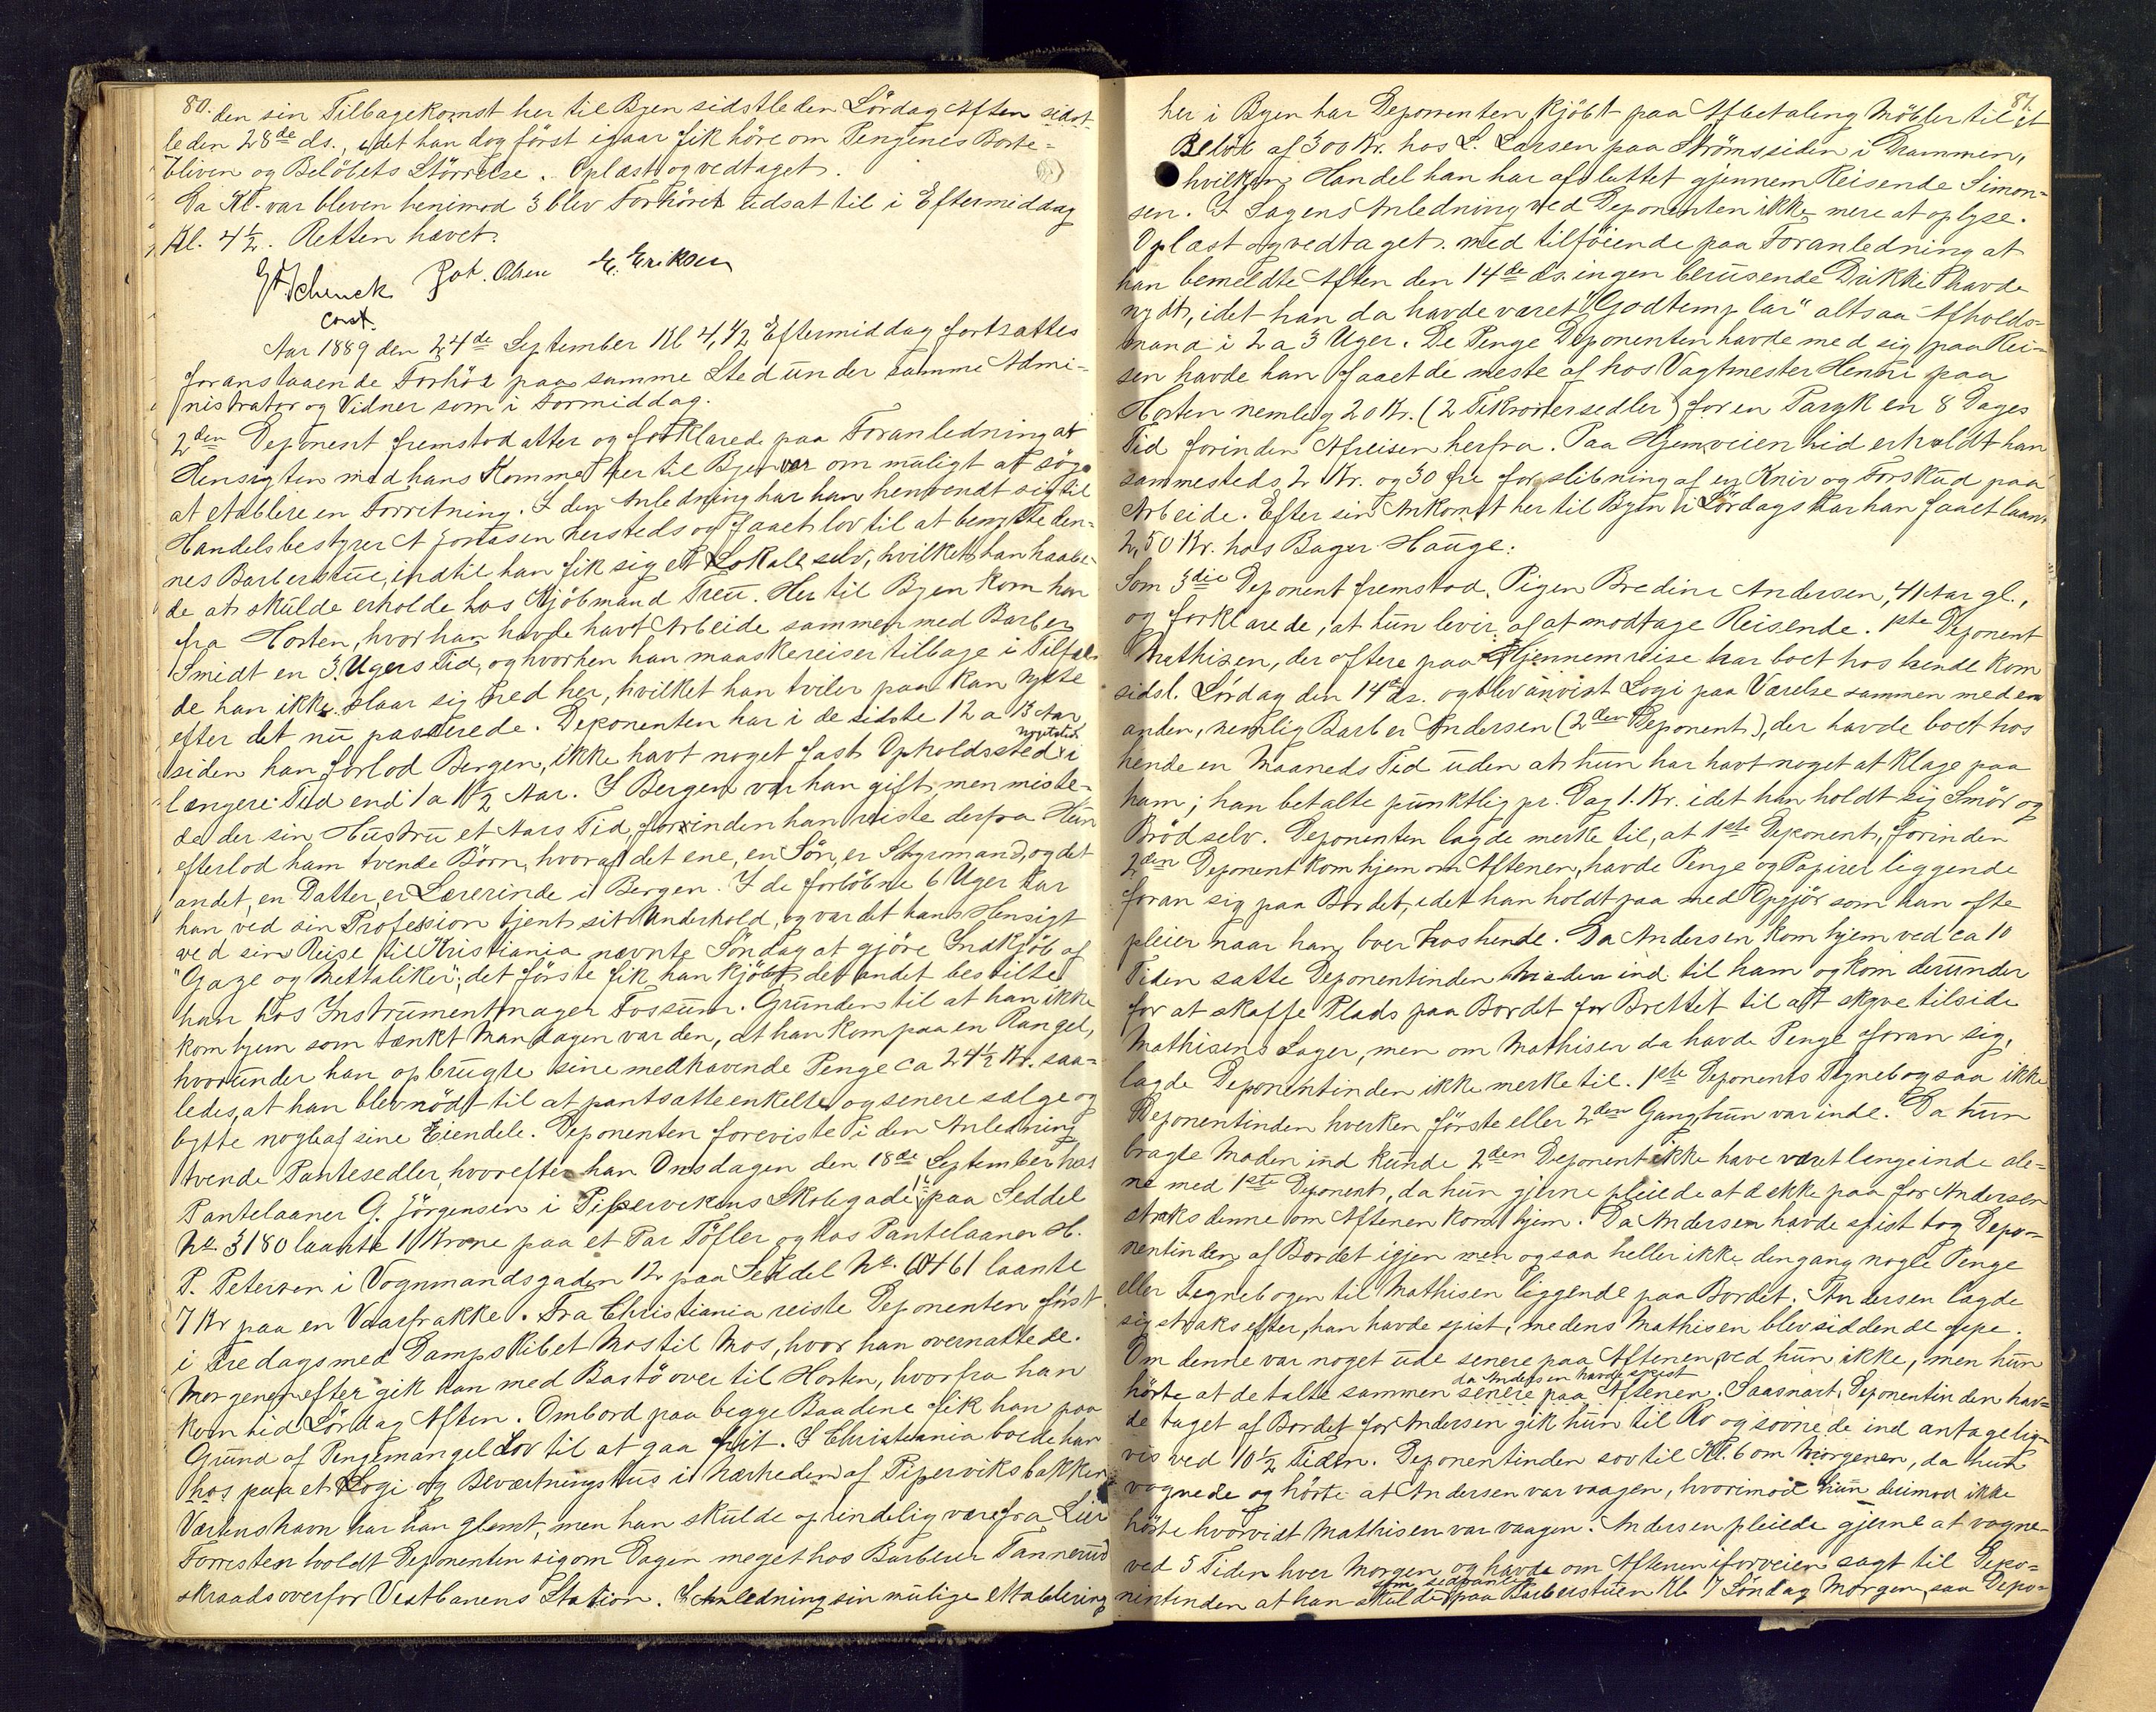 80.
den sin Tilbagekomst her til Byen sidstleden Lördag Aften sidst-
leden 28de ds., idet han dog först igaar fik höre om Pengenes Borte=
bliven og Belöbets Störrelse. Oplæst og vedtaget.
Da Kl. var bleven henimod 3 blev Forhöret udsat til i Eftermiddag
Kl. 4½. Retten hævet.
Schenck Joh. Olsen E. Eriksen
const.
Aar 1889 den 24de September Kl 4,½ Eftermiddag fortsattes
foranstaaende Forhör paa samme Sted under samme Admi-
nistrator og Vidner som i Formiddag.
2den Deponent fremstod atter og forklarede paa Foranledning at
Hensigten med hans Komme her til Byen var om muligt at söge
at etablere en Forretning. I den Anledning har han henvendt sig til
Handelsbestyrer A Jonasen hersteds og faaet lov til at benytte den-
nes Barberstue, indtil han fik sig et Lokale selv, hvilket han haabe-
de at skulde erholde hos Kjöbmand Treu. Her til Byen kom han
fra Horten, hvor han havde havt Arbeide sammen med Barber
Smidt en 3 Ugers Tid, og hvorhen han maaske reiser tilbage i Tilfæl-
de han ikke slaar sig ned her, hvilket han tviler paa kan nytte
efter det nu passerede. Deponenten har i de sidste 12 a 13 Aar
siden han forlod Bergen, ikke havt noget fast Opholdssted i
længere Tid end 1 a 1½ Aar. I Bergen var han gift, men miste-
de der sin Hustru et Aars Tid, forinden han reiste derfra Hun
efterlod ham tvende Börn, hvoraf det ene, en Sön, er Styrmand, og det
andet, en Datter, er Lærerinde i Bergen. I de forlöbne 6 Uger har
han ved sin Profession tjent sit Underhold, og var det hans Hensigt
ved sin Reise til Kristiania nævnte Söndag at gjöre Indkjöb af
"Gaze og Mettaliker"; det förste fik han kjöbt, det andet bestilte
han hos Instrumentmager Fossum. Grunden til at han ikke
kom hjem som tænkt Mandagen var den, at han kom paa en Rangel,
hvorunder han opbrugte sine medhavende Penge ca 24½ Kr. saa-
ledes, at han blev nödt til at pantsatte enkelte og senere sælge og
bytte nogle af sine Eiendele. Deponenten foreviste i den Anledning
tvende Pantesedler, hvorefter han Onsdagen den 18de September hos
Pantelaaner G. Jörgensen i Pipervikens Skolegade paa Seddel
No 3180 laante 1 Krone paa et Par Töfler og hos Pantelaaner H.
P. Petersen i Vognmandsgaden 12 paa Seddel No. 60461 laante
7 Kr paa en Vaarfrakke. Fra Christiania reiste Deponenten först
i Fredags med Dampskibet Mos til Mos, hvor han overnattede.
Morgenen efter gik han med Bastö over til Horten, hvorfra han
kom hid Lördag Aften. Ombord paa begge Baadene fik han paa
Grund af Pengemangel Lov til at gaa frit. I Christiania boede han
hos paa et Logi og Beværtningshus i Nærheden af Piperviksbakken
Værtens navn har han glemt, men han skulde oprindelig være fra Lier
Forresten holdt Deponenten sig om Dagen meget hos Barberer Tannerud
skraads overfor Vestbanens Station. I Anledning sin mulige Etablering
81.
her i Byen har Deponenten kjöbt paa Afbetaling Möbler til et
Belöb af 300 Kr. hos L. Larsen paa Strömssiden i Drammen,
hvilken Handel han har afsluttet gjennem Reisende Simon-
sen. I Sagens Anledning ved Deponenten ikke mere at oplyse.
Oplæst og vedtaget. med tilföiende paa Foranledning at
han bemeldte Aften den 14de ds. ingen berusende Drikke havde
nydt, idet han da havde været "Godtemplar" altsaa Afholds-
mand i 2 a 3 Uger. De Penge Deponenten havde med sig paa Rei-
sen havde han faaet de meste af hos Vagtmester Henni paa
Horten nemlig 20 Kr. (2 Tikronersedler) for en Paryk en 8 Dages
Tid forinden Afreisen herfra. Paa Hjemveien hid erholdt han
sammesteds 2 Kr. og 30 öre for slibning af en Kniv og Forskud paa
Arbeide. Efter sin Ankomst her til Byen i Lördags har han faaet laant
2,50 Kr. hos Bager Hauge.
Som 3die Deponent fremstod Pigen Bredine Andersen, 41 Aar gl.,
og forklarede, at hun lever af at modtage Reisende. 1ste Deponent
Mathisen, der oftere paa Gjennemreise har boet hos hende kom
sidsl. Lördag den 14de ds. og blev anvist Logi paa Værelse sammen med en
anden, nemlig Barber Andersen (2den Deponent), der havde boet hos
hende en Maaneds Tid uden at hun har havt noget at klage paa
ham; han betalte punktlig pr. Dag 1. Kr. idet han holdt sig Smör og
Bröd selv. Deponenten lagde merke til, at 1ste Deponent, forinden
2den Deponent kom hjem om Aftenen, havde Penge og Papirer liggende
foran sig paa Bordet, idet han holdt paa med Opgjör som han ofte
pleier naar han boer hos hende. Da Andersen kom hjem ved ca 10
Tiden satte Deponentinden Maden ind til ham og kom derunder
for at skaffe Plads paa Bordet for Brettet til at skyve tilside
Mathisens Sager, men om Mathisen da havde Penge foran sig,
lagde Deponentinden ikke merke til. 1ste Deponents Tegnebog saa ikke
Deponentinden hverken förste eller 2den Gang hun var inde. Da hun
bragte Maden ind kunde 2den Deponent ikke have været lenge inde ale-
ne med 1ste Deponent, da hun gjerne pleiede at dekke paa for Andersen
straks denne om Aftenen kom hjem. Da Andersen havde spist tog Depo-
nentinden af Bordet igjen men og saa heller ikke dengang nogle Penge
eller Tegnebogen til Mathisen liggende paa Bordet. Andersen lagde
sig straks efter, han havde spist, medens Mathisen blev siddende oppe.
Om denne var noget ude senere paa Aftenen, ved hun ikke, men hun
hörte at de talte sammen senere paa Aftenen da Andersen havde spist. Saasnart Deponentinden hav-
de taget af Bordet for Andersen gik hun til Ro og sovnede ind antagelig-
vis ved 10½ Tiden. Deponentinden sov til Kl. 6 om Morgenen, da hun
vognede og hörte at Andersen var vaagen, hvorimod hun derimod ikke
hörte hvorvidt Mathisen var vaagen. Andersen pleiede gjerne at vogne
ved 5 Tiden hver Morgen og havde om Aftenen iforveien sagt til Depo-
nentinden at han skulde som sedvanlig paa Barberstuen Kl 7 Söndag Morgen, saa Depo-